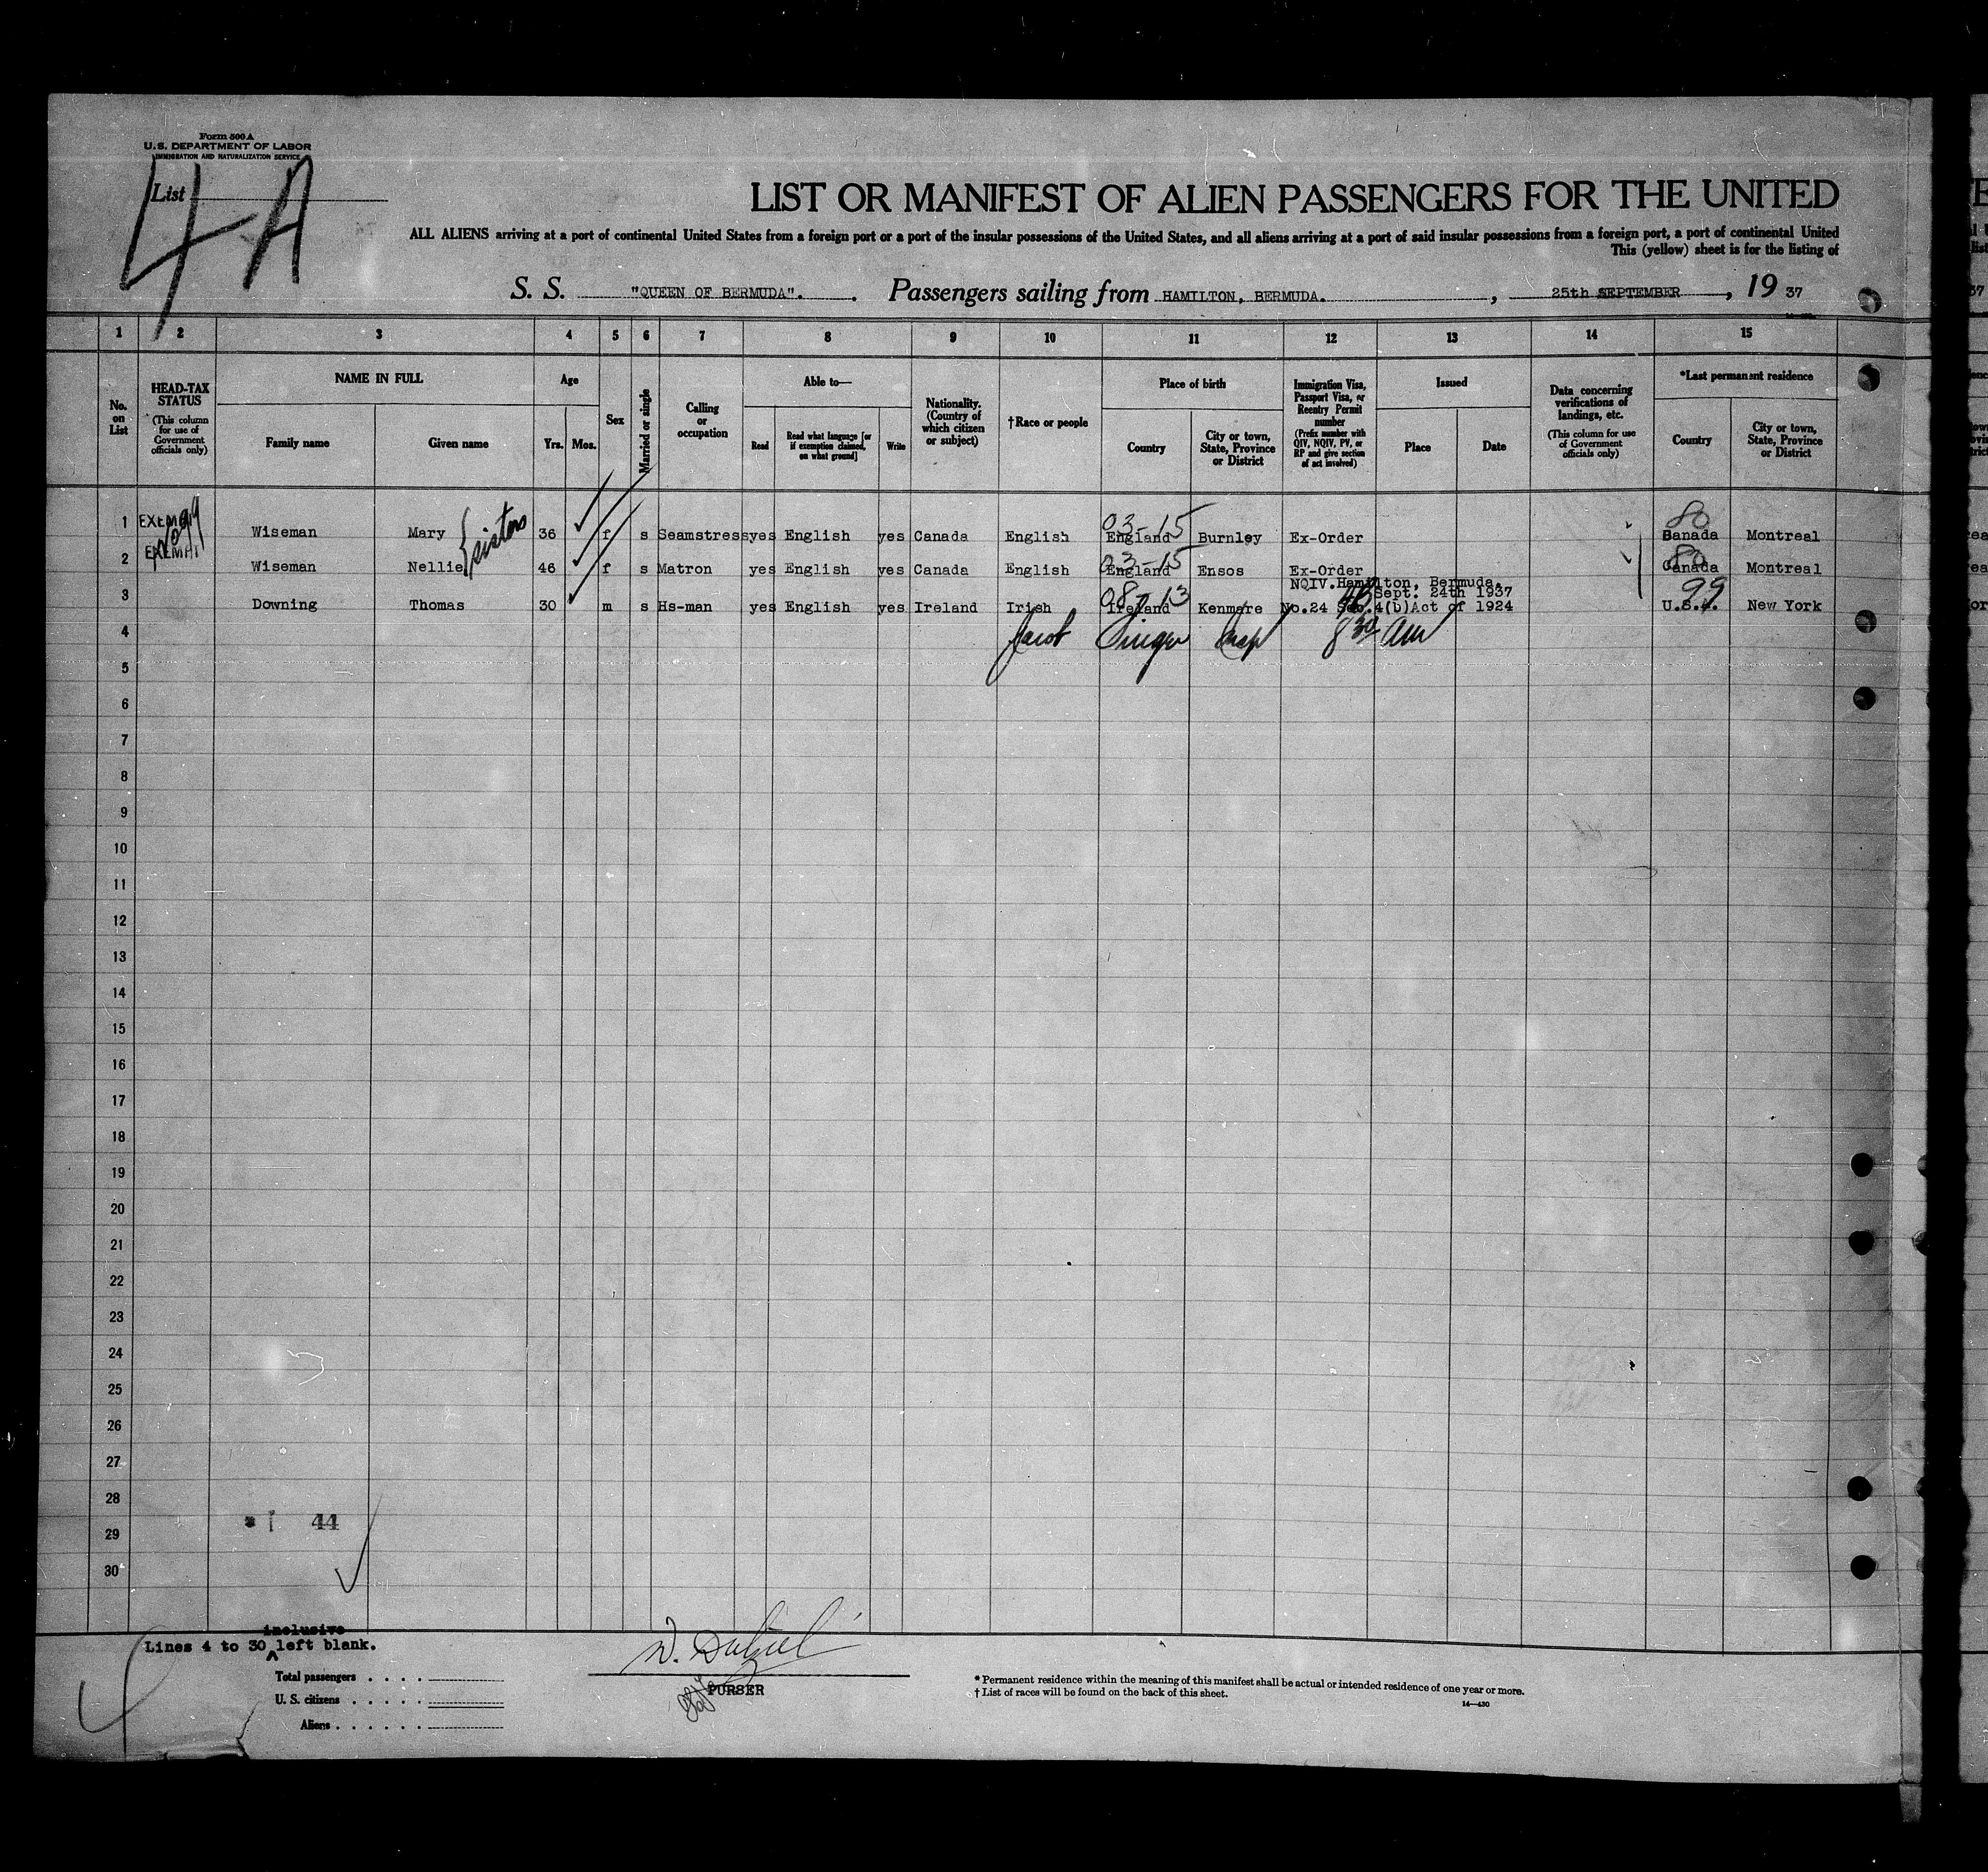 Form 500 A
U. S. DEPARTMENT OF LABOR
IMMIGRATION AND NATURALIZATION SERVICE
List 4-A
LIST OR MANIFEST OF ALIEN PASSENGERS FOR THE UNITED
ALL ALIENS arriving at a port of continental United States from a foreign port or a port of the insular possessions of the United States, and all aliens arriving at a port of said insular possessions from a foreign port, a port of continental United
This (yellow) sheet is for the listing of
S. S. "QUEEN OF BERMUDA". Passengers sailing from HAMILTON, BERMUDA. , 25th SEPTEMBER , 19 37
1 2 3 4 5 6 7 8 9 10 11 12 13 14 15
No. on List
HEAD-TAX STATUS
(This column for use of Government officials only)
NAME IN FULL
Family name Given name
Age
Yrs. Mos.
Sex
Married or single
Calling or occupation
Able to—
Read
Read what language [or if exemption claimed, on what ground]
Write
Nationality. (Country of which citizen or subject)
†Race or people
Place of birth
Country
City or town, State, Province or District
Immigration Visa, Passport Visa, or Reentry Permit number
(Prefix number with QIV, NQIV, PV, or RP and give section of act involved)
Issued
Place Date
Data concerning verifications of landings, etc.
(This column for use of Government officials only)
*Last permanent residence
Country
City or town, State, Province or District
03-15 80
1 EXEMPT Wiseman Mary sisters 36 f s Seamstress yes English yes Canada English England Burnley Ex-Order Banada Montreal
EXEMPT
03-15 80
2 Wiseman Nellie 46 f s Matron yes English yes Canada English England Ensos Ex-Order Canada Montreal
NQIV. Hamilton, Bermuda.
08-13 Sept. 24th 1937 99
3 Downing Thomas 30 m s Hs-man yes English yes Ireland Irish Ireland Kenmare No.24 Sec.4(b)Act of 1924 U.S.A. New York
4 Jacob Singer Insp 8 30 AM
5
6
7
8
9
10
11
12
13
14
15
16
17
18
19
20
21
22
23
24
25
26
27
28
44
29
30
inclusive
Lines 4 to 30 left blank.
Total passengers
U. S. citizens
Aliens
PURSER
* Permanent residence within the meaning of this manifest shall be actual or intended residence of one year or more.
† List of races will be found on the back of this sheet.
14—430